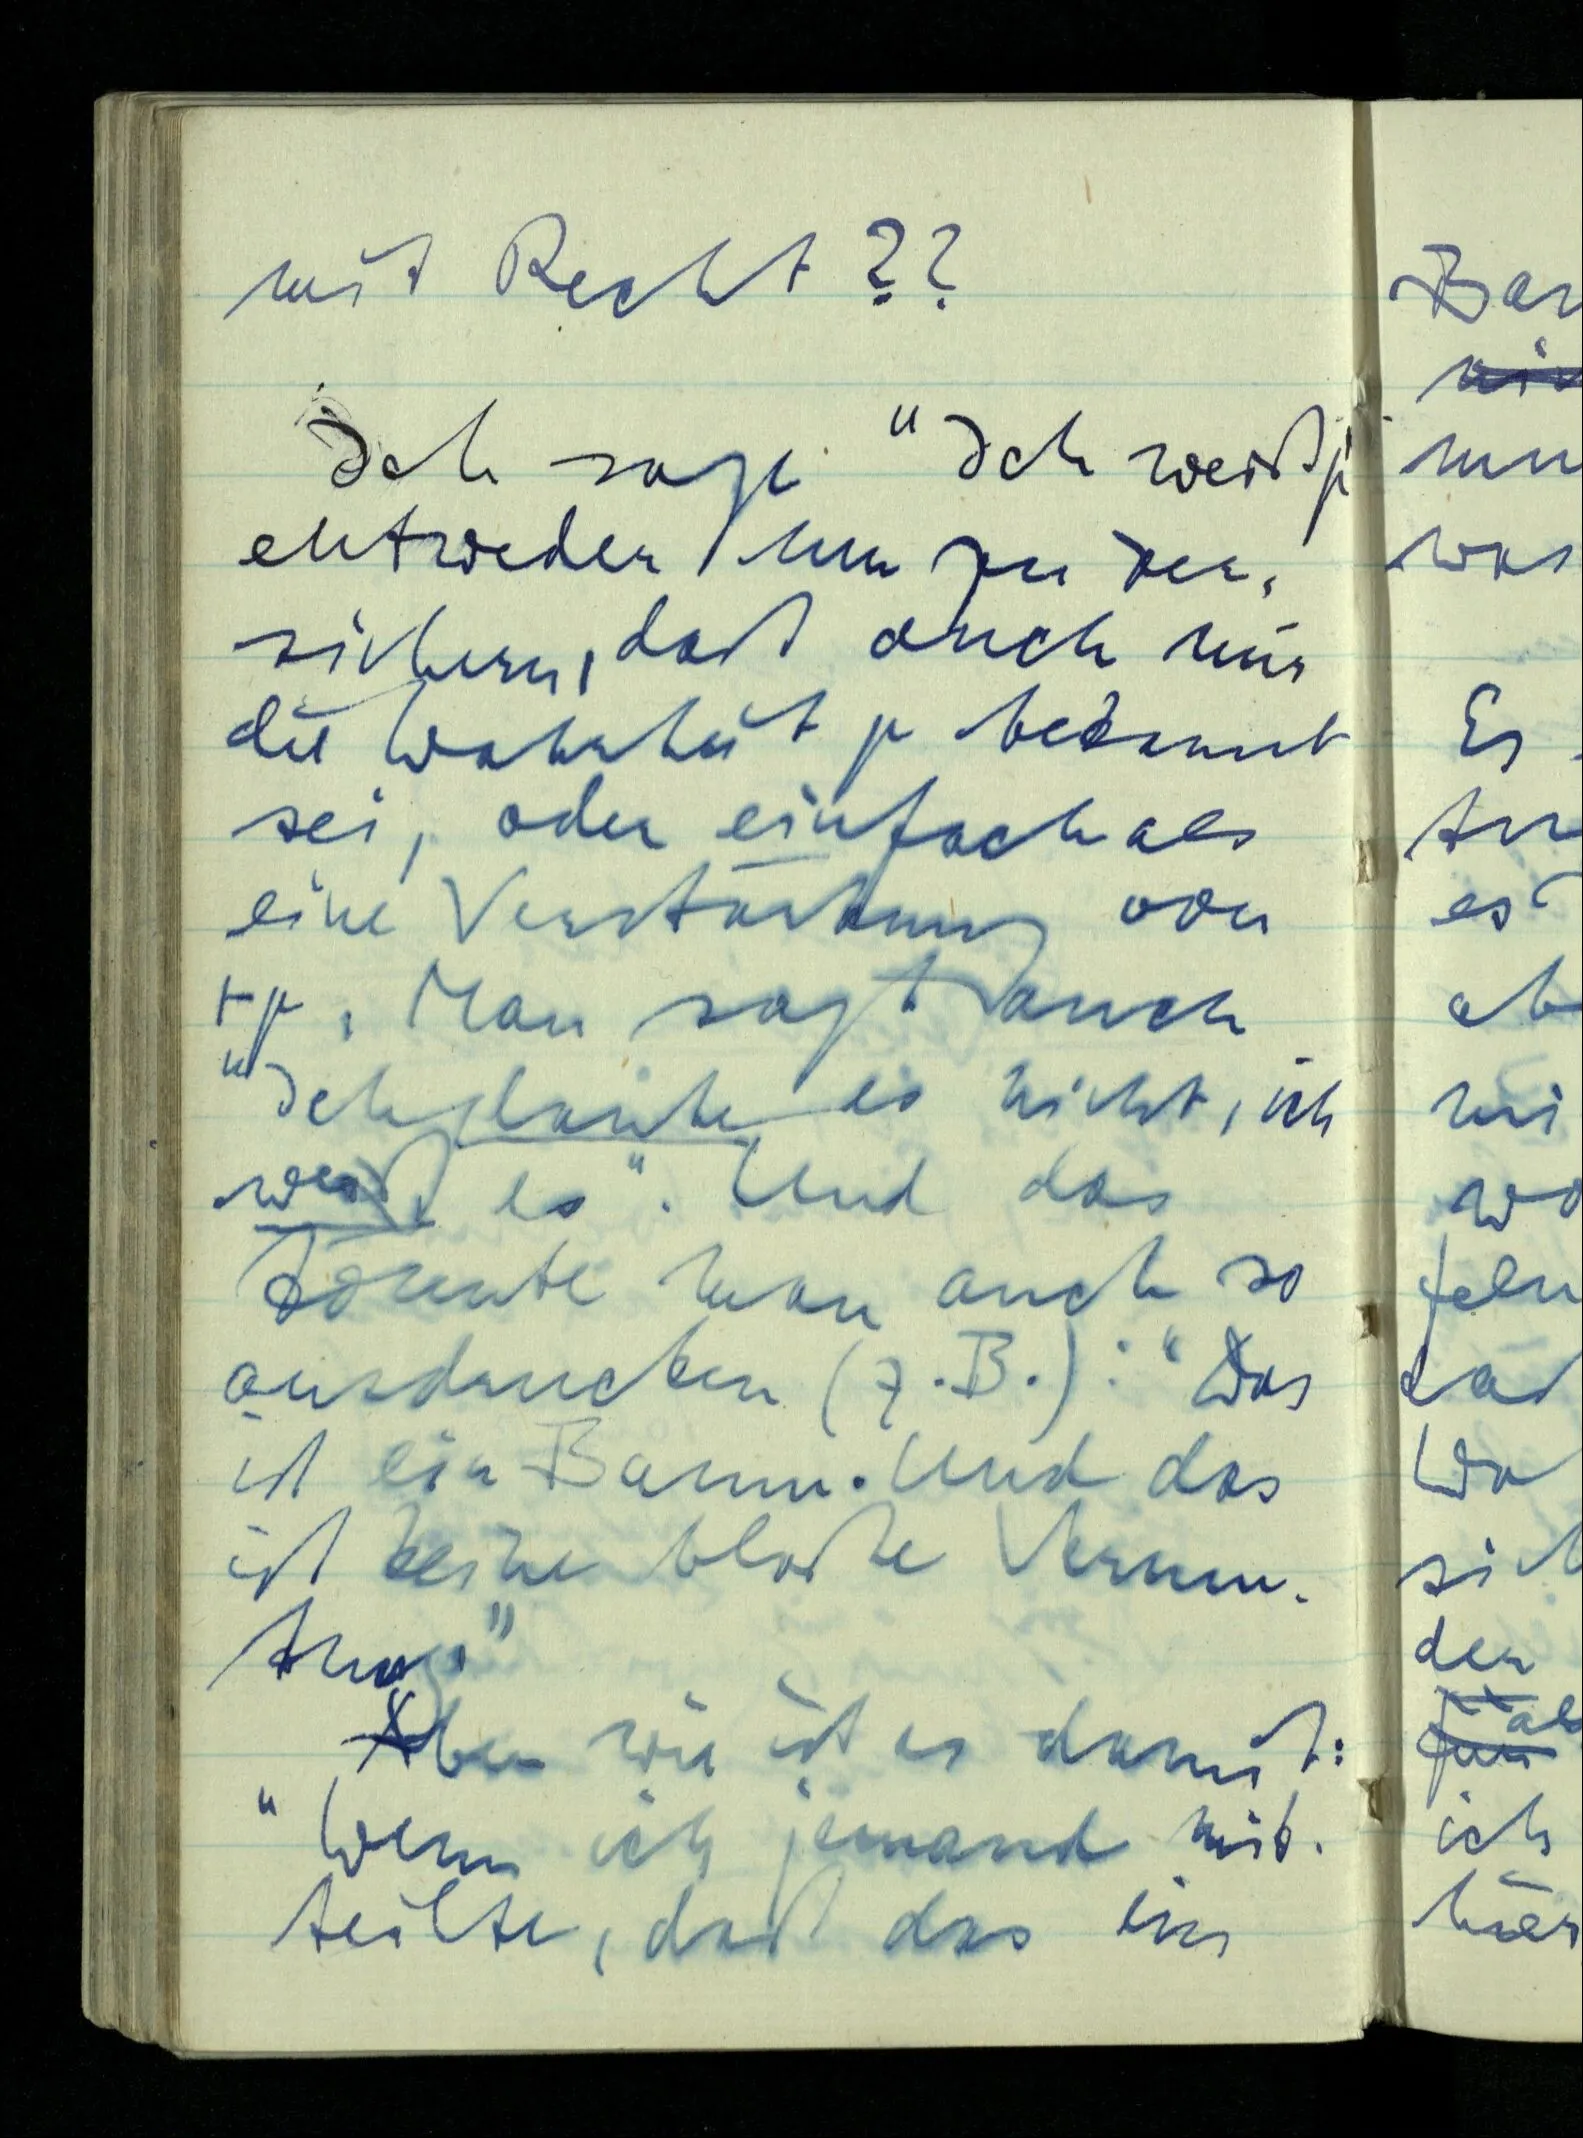 mit Recht??
Ich sage "Ich weiß p"
entweder um zu ver-
sichern, daß auch mir
die Wahrheit p bekannt
sei, oder einfach als
eine Verstärkung von
⊢p. Man sagt auch
"Ich glaube es nicht, ich
weiß es". Und das
könnte man auch so
ausdrücken (z.B.): "Das
ist ein Baum. Und das
ist keine bloße Vermu-
tung."
Aber wie ist es damit:
"Wenn ich jemand mit-
teilte, daß das ein
Es
der
ich